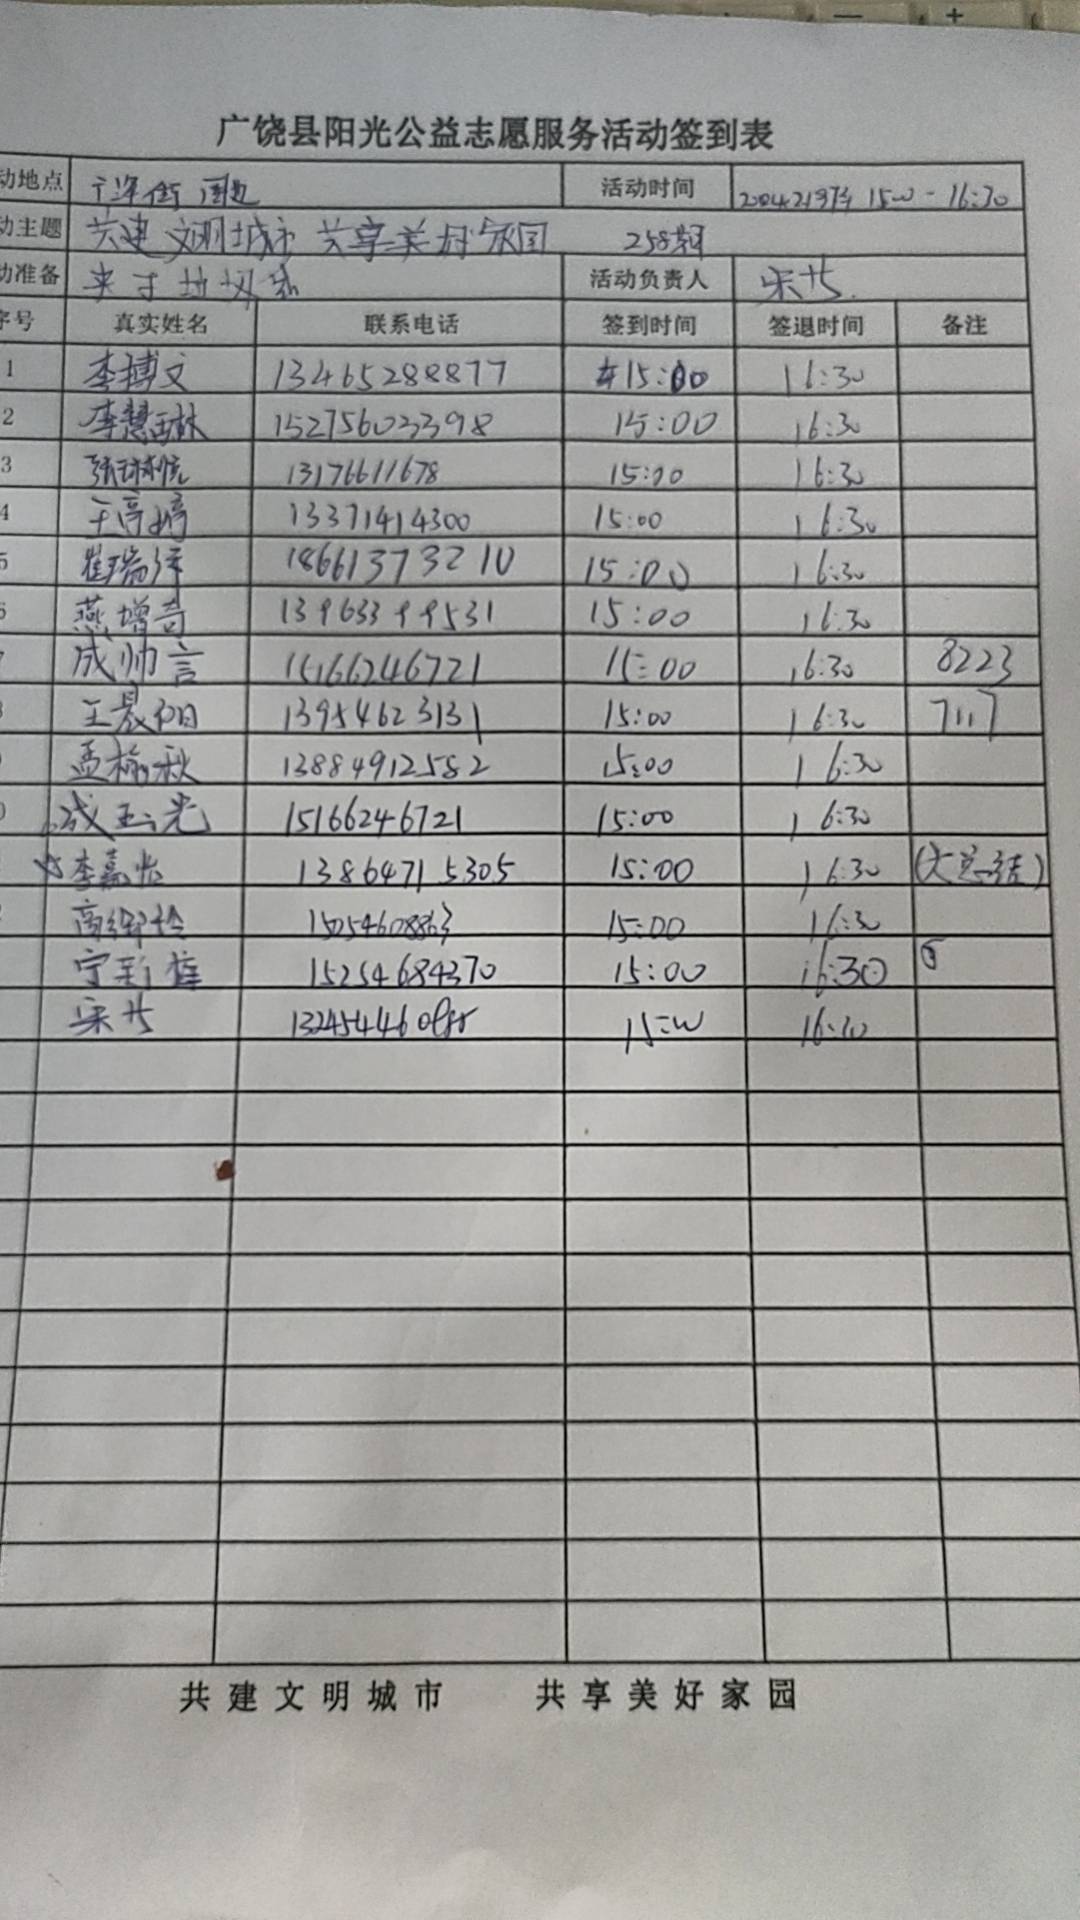 广饶县阳光公益志愿服务活动签到表
动地点 周边 活动时间 15:00-16:30
动主题 共建文明城市 共享美好家园 258期
动准备 夹子 垃圾袋 活动负责人 宋
序号 真实姓名 联系电话 签到时间 签退时间 备注
1 李搏文 13465288877 15:00 16:30
2 李慧琳 15275603398 15:00 16:30
3 张琳悦 13176611678 15:00 16:30
4 王婷婷 13371414300 15:00 16:30
5 崔瑞 18661373210 15:00 16:30
6 燕增奇 13963399531 15:00 16:30
7 成帅言 15166246721 15:00 16:30 8223
王晨阳 13954623131 15:00 16:30 7117
孟榆秋 13884912582 15:00 16:30
成玉光 15166246721 15:00 16:30
☆李嘉怡 13864715305 15:00 16:30 (大总结)
高 15054608863 15:00 16:30
宁彩 15254684370 15:00 16:30
宋 15:00 16:30
共建文明城市 共享美好家园